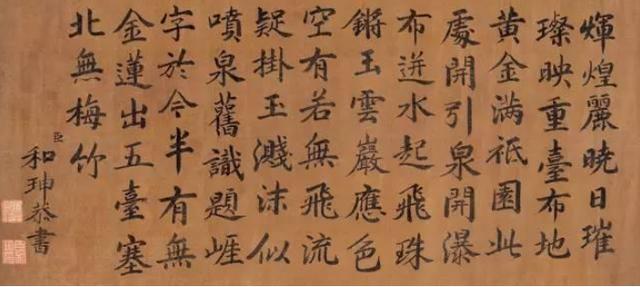 輝煌麗曉日璀
璨映重臺布地
黃金滿祇園此
處開引泉開瀑
布迸水起飛珠
鏘玉雲巖應色
空有若無飛流
疑掛玉濺沫似
噴泉舊識題崕
字於今半有無
金蓮出五臺塞
北無梅竹
臣和珅恭書